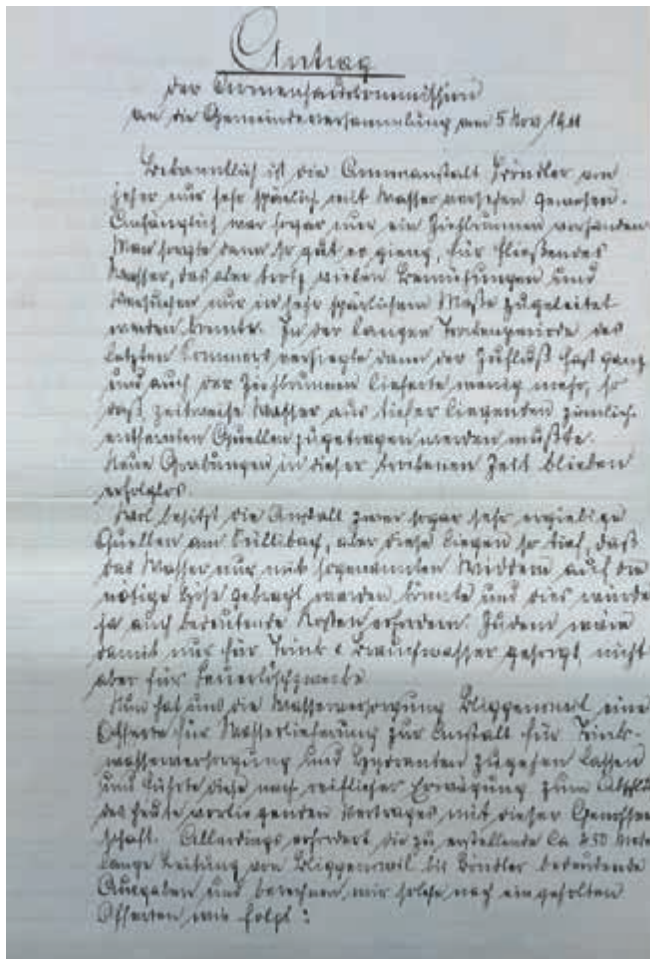 Antrag
der Armenhauskommission
an die Gemeindeversammlung am 5 Nov 1911
Bekanntlich ist die Armenanstalt von
jeher nur sehr spärlich mit Wasser versehen gewesen.
Anfänglich war sogar nur ein Ziehbrunnen vorhanden
Man sorgte dann so gut es gieng, für fließendes
Wasser, das aber trotz vielen Bemühungen und
Versuchen nur in sehr spärlichem Maße zugeleitet
werden konnte. In der langen Trockenperiode des
letzten Sommers versiegte dann der Zufluß fast ganz
und auch der Ziehbrunnen lieferte wenig mehr, so
daß zeitweise Wasser aus tiefer liegenden ziemlich
entfernten Quellen zugetragen werden mußte.
Neue Grabungen in dieser trockenen Zeit blieben
erfolglos.
Wol besitzt die Anstalt zwar sogar sehr ergiebige
Quellen am, aber diese liegen so tief, daß
das Wasser nur mit sogenannten Widdern auf die
nötige Höhe gebracht werden könnte und dies würde
ja auch bedeutende Kosten erfordern. Zudem wäre
damit nur für Trink & Brauchwasser gesorgt, nicht
aber für Feuerlöschzwecke
Nun hat uns die Wasserversorgung Bliggenswil eine
Offerte für Wasserlieferung zur Anstalt für Trink-
wasserversorgung und Hydranten zugehen lassen
und führte diese nach reiflicher Erwägung zum
des heute vorliegenden Vertrages mit dieser Genossen
schaft. Allerdings erfordert die zu erstellende Ca 450
lange Leitung von Bliggenswil bis bedeutende
Ausgaben und berechnen wir solche nach eingeholten
Offerten wie folgt: